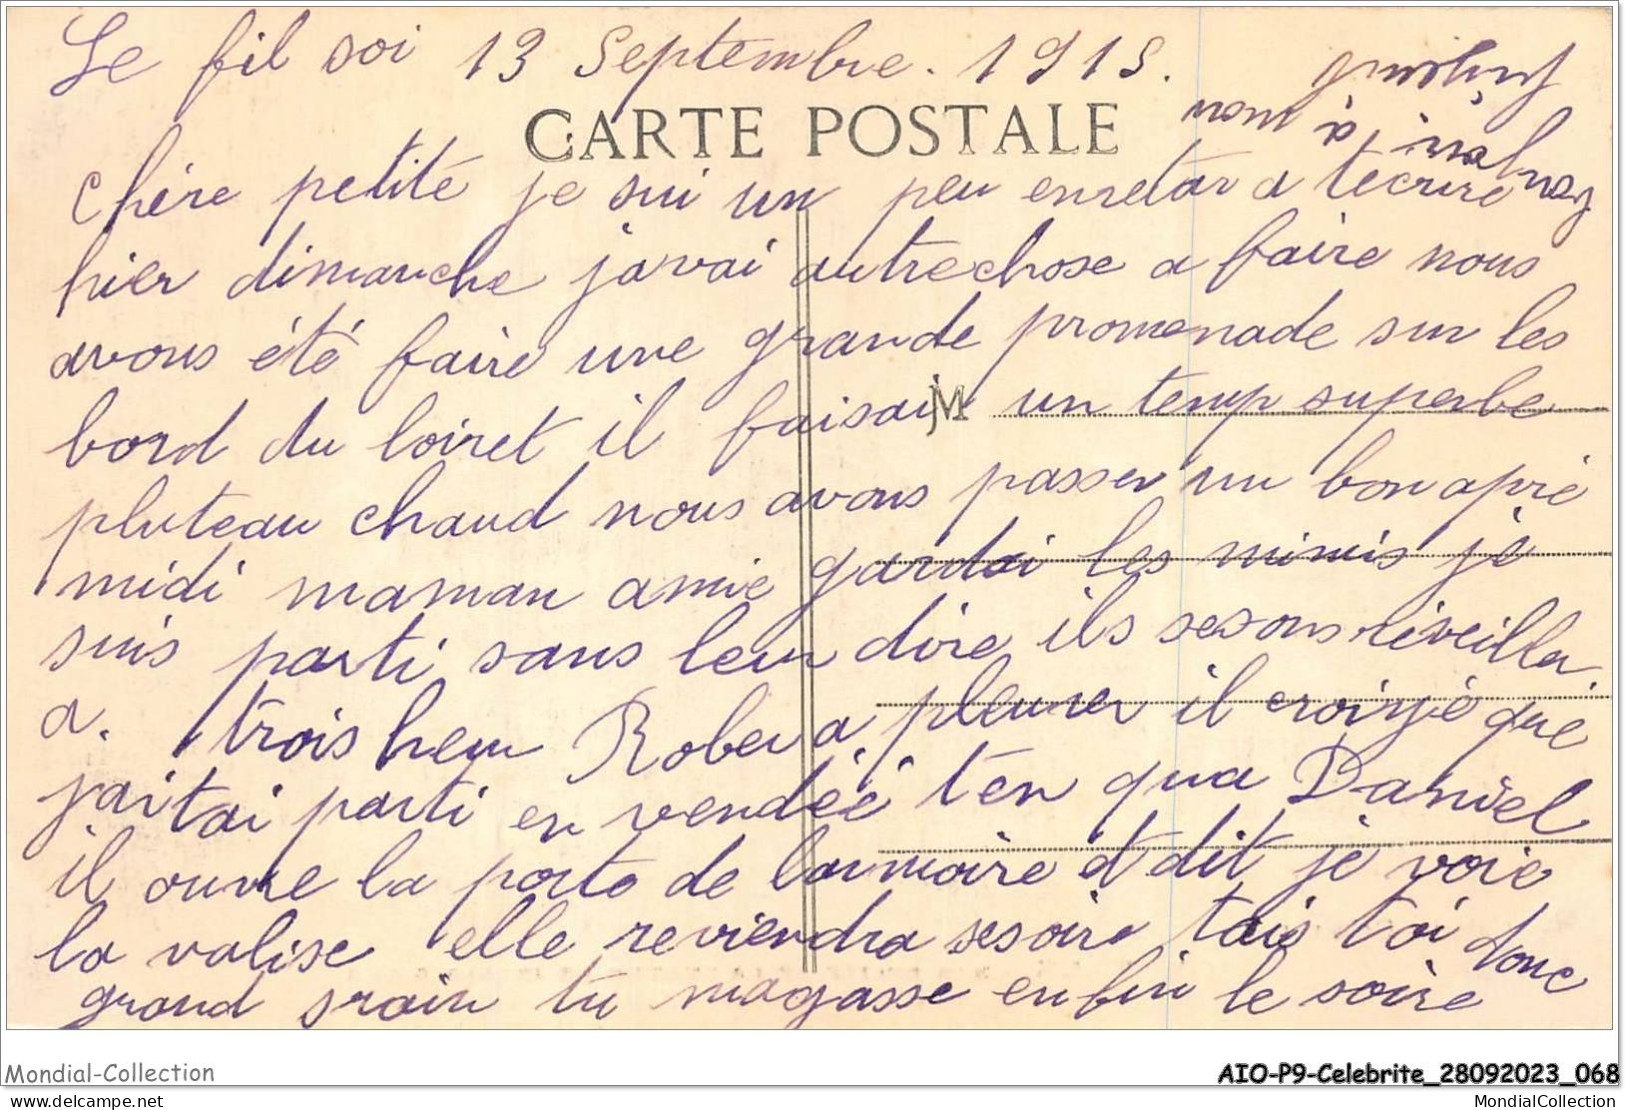 Le fil soi 13 Septembre. 1915.
CARTE POSTALE
nom à
Chère petite je sui un peu enretar a tecrire
hier dimanche javai autrechose a faire nous
avons été faire une grande promenade sur les
bord du loiret il faisai un temp superbe
M
pluteau chaud nous avons passer un bon aprié
midi maman amie gardai les mimis je
suis parti sans leur dire ils sesons réveilla
a. trois heur Rober a pleurer il croiyié que
jaitai parti en vendéé ten qua Daniel
il ouvre la porte de larmoire et dit je voie
la valise elle reviendra sesoire tais toi donc
grand srain tu magasse enfin le soire
Mondial-Collection
AIO-P9-Celebrite_28092023_068
www.mondialcollection.com
MondialCollection